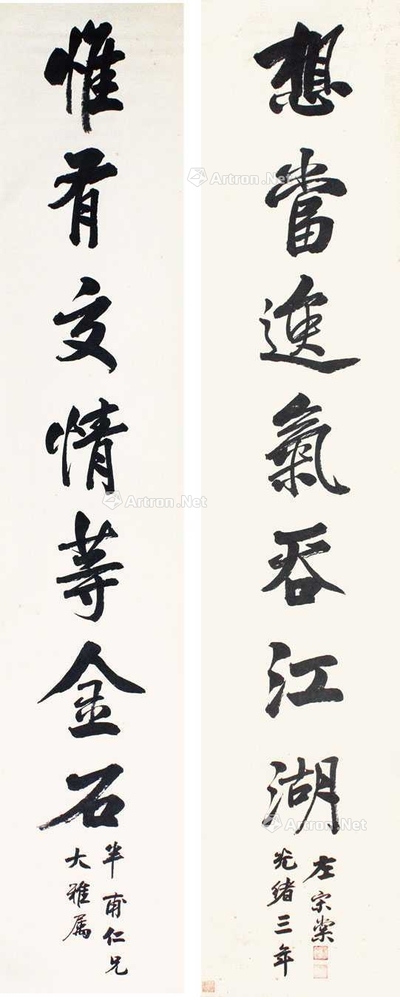 想當逸氣吞江湖
左宗棠
光緒三年
惟有交情等金石
半甫仁兄
大雅属
Artron.Net
Artron.Net
Artron.Net